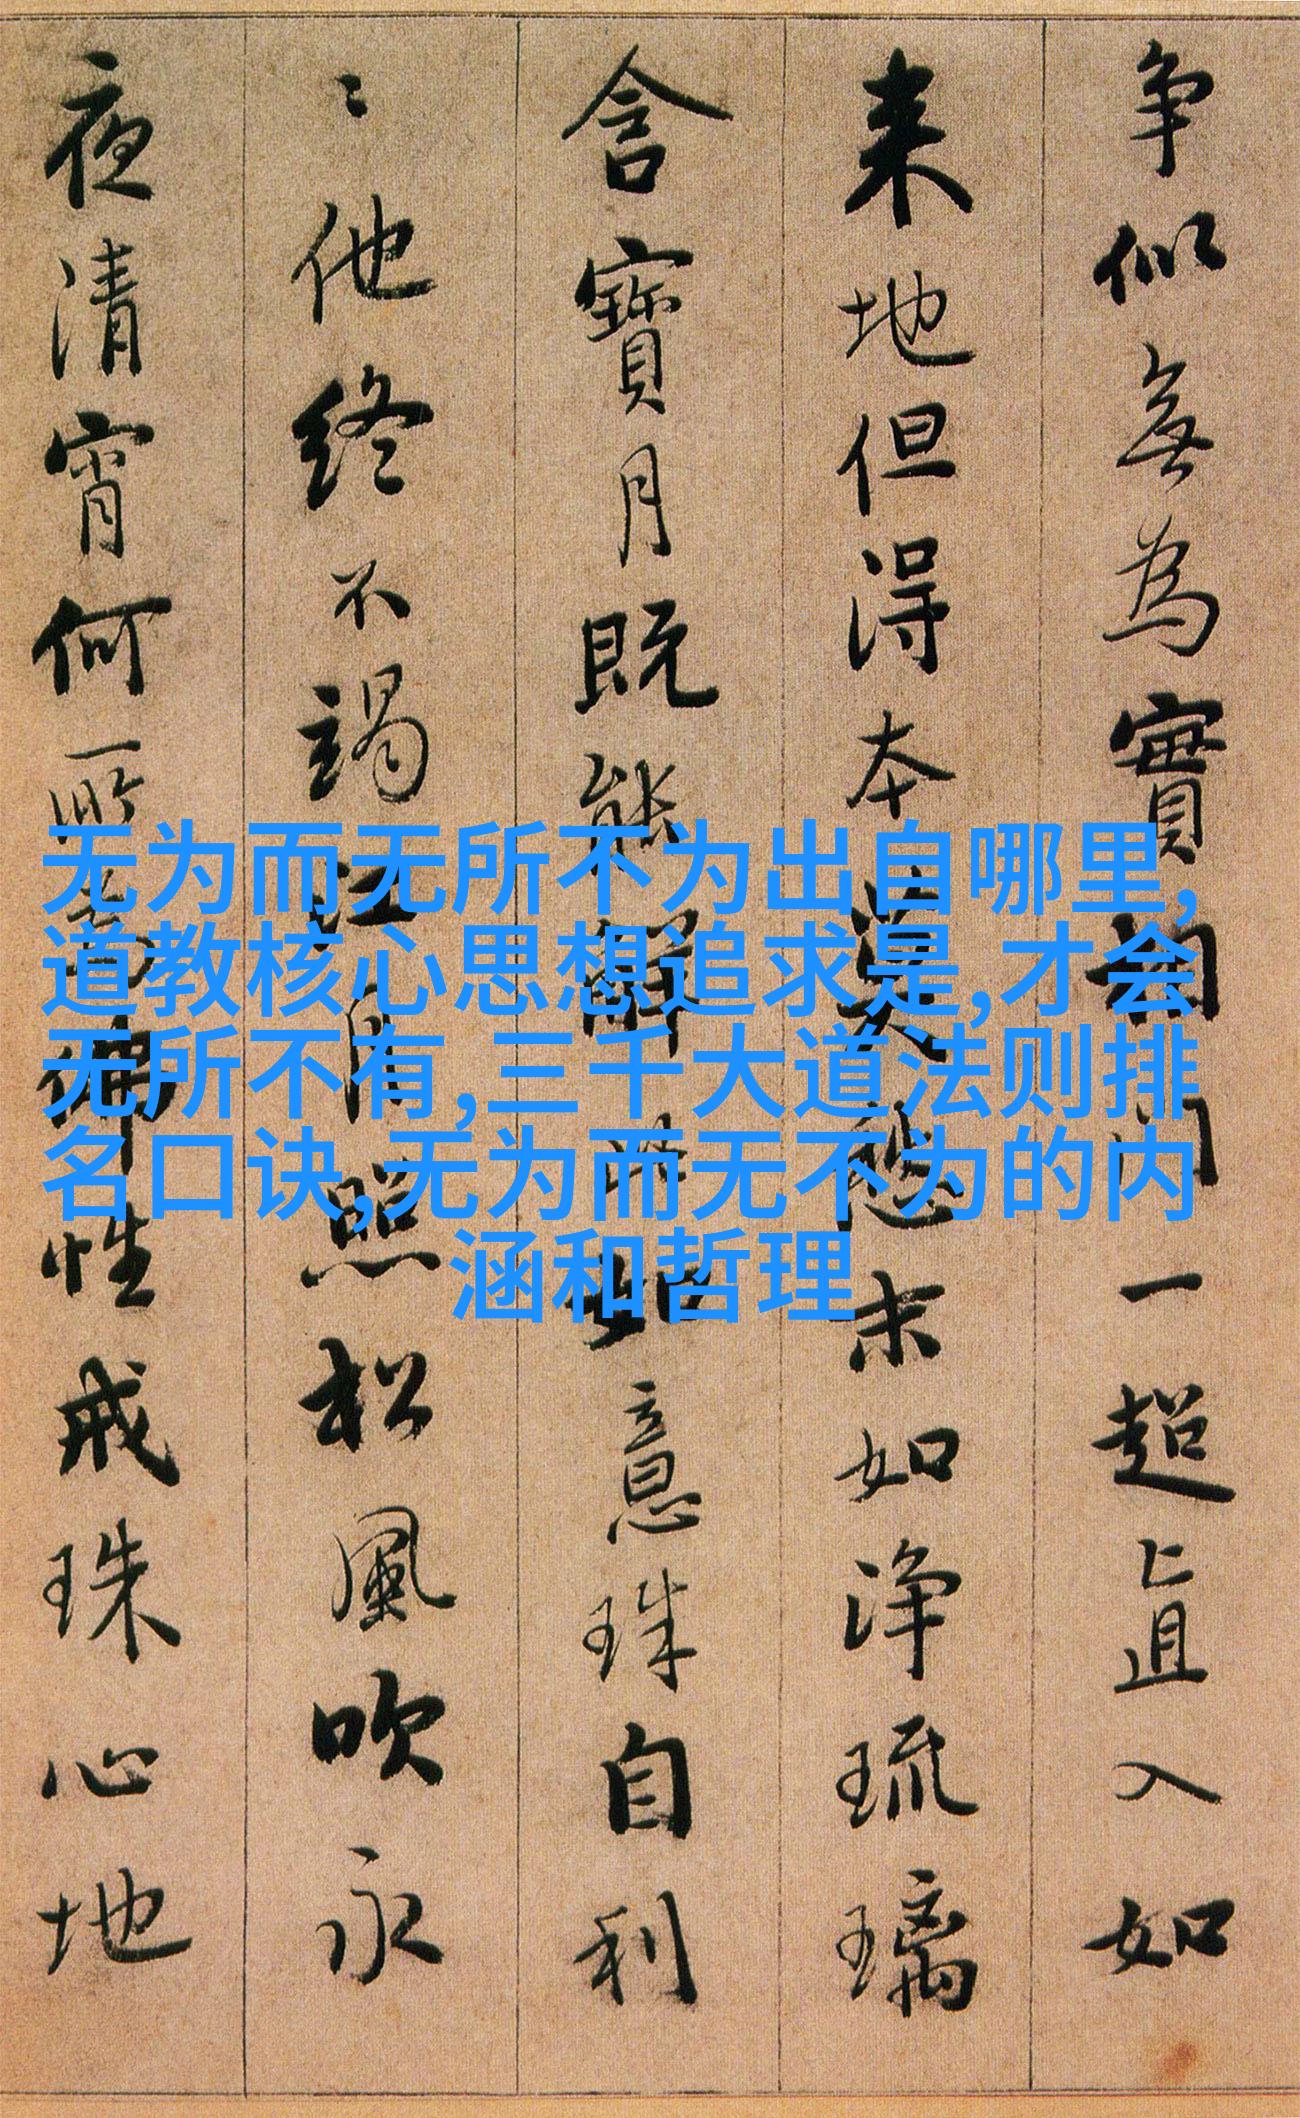 争似無為實相門一超直入如
来地但得本莫愁末如浄琉璃
含寶月既能解此如意珠自利
〻他終不竭江月照松風吹永
夜清宵何所為佛性戒珠心地
无为而无所不为出自哪里,
道教核心思想追求是,才会
无所不有,三千大道法则排
名口诀,无为而无不为的内
涵和哲理